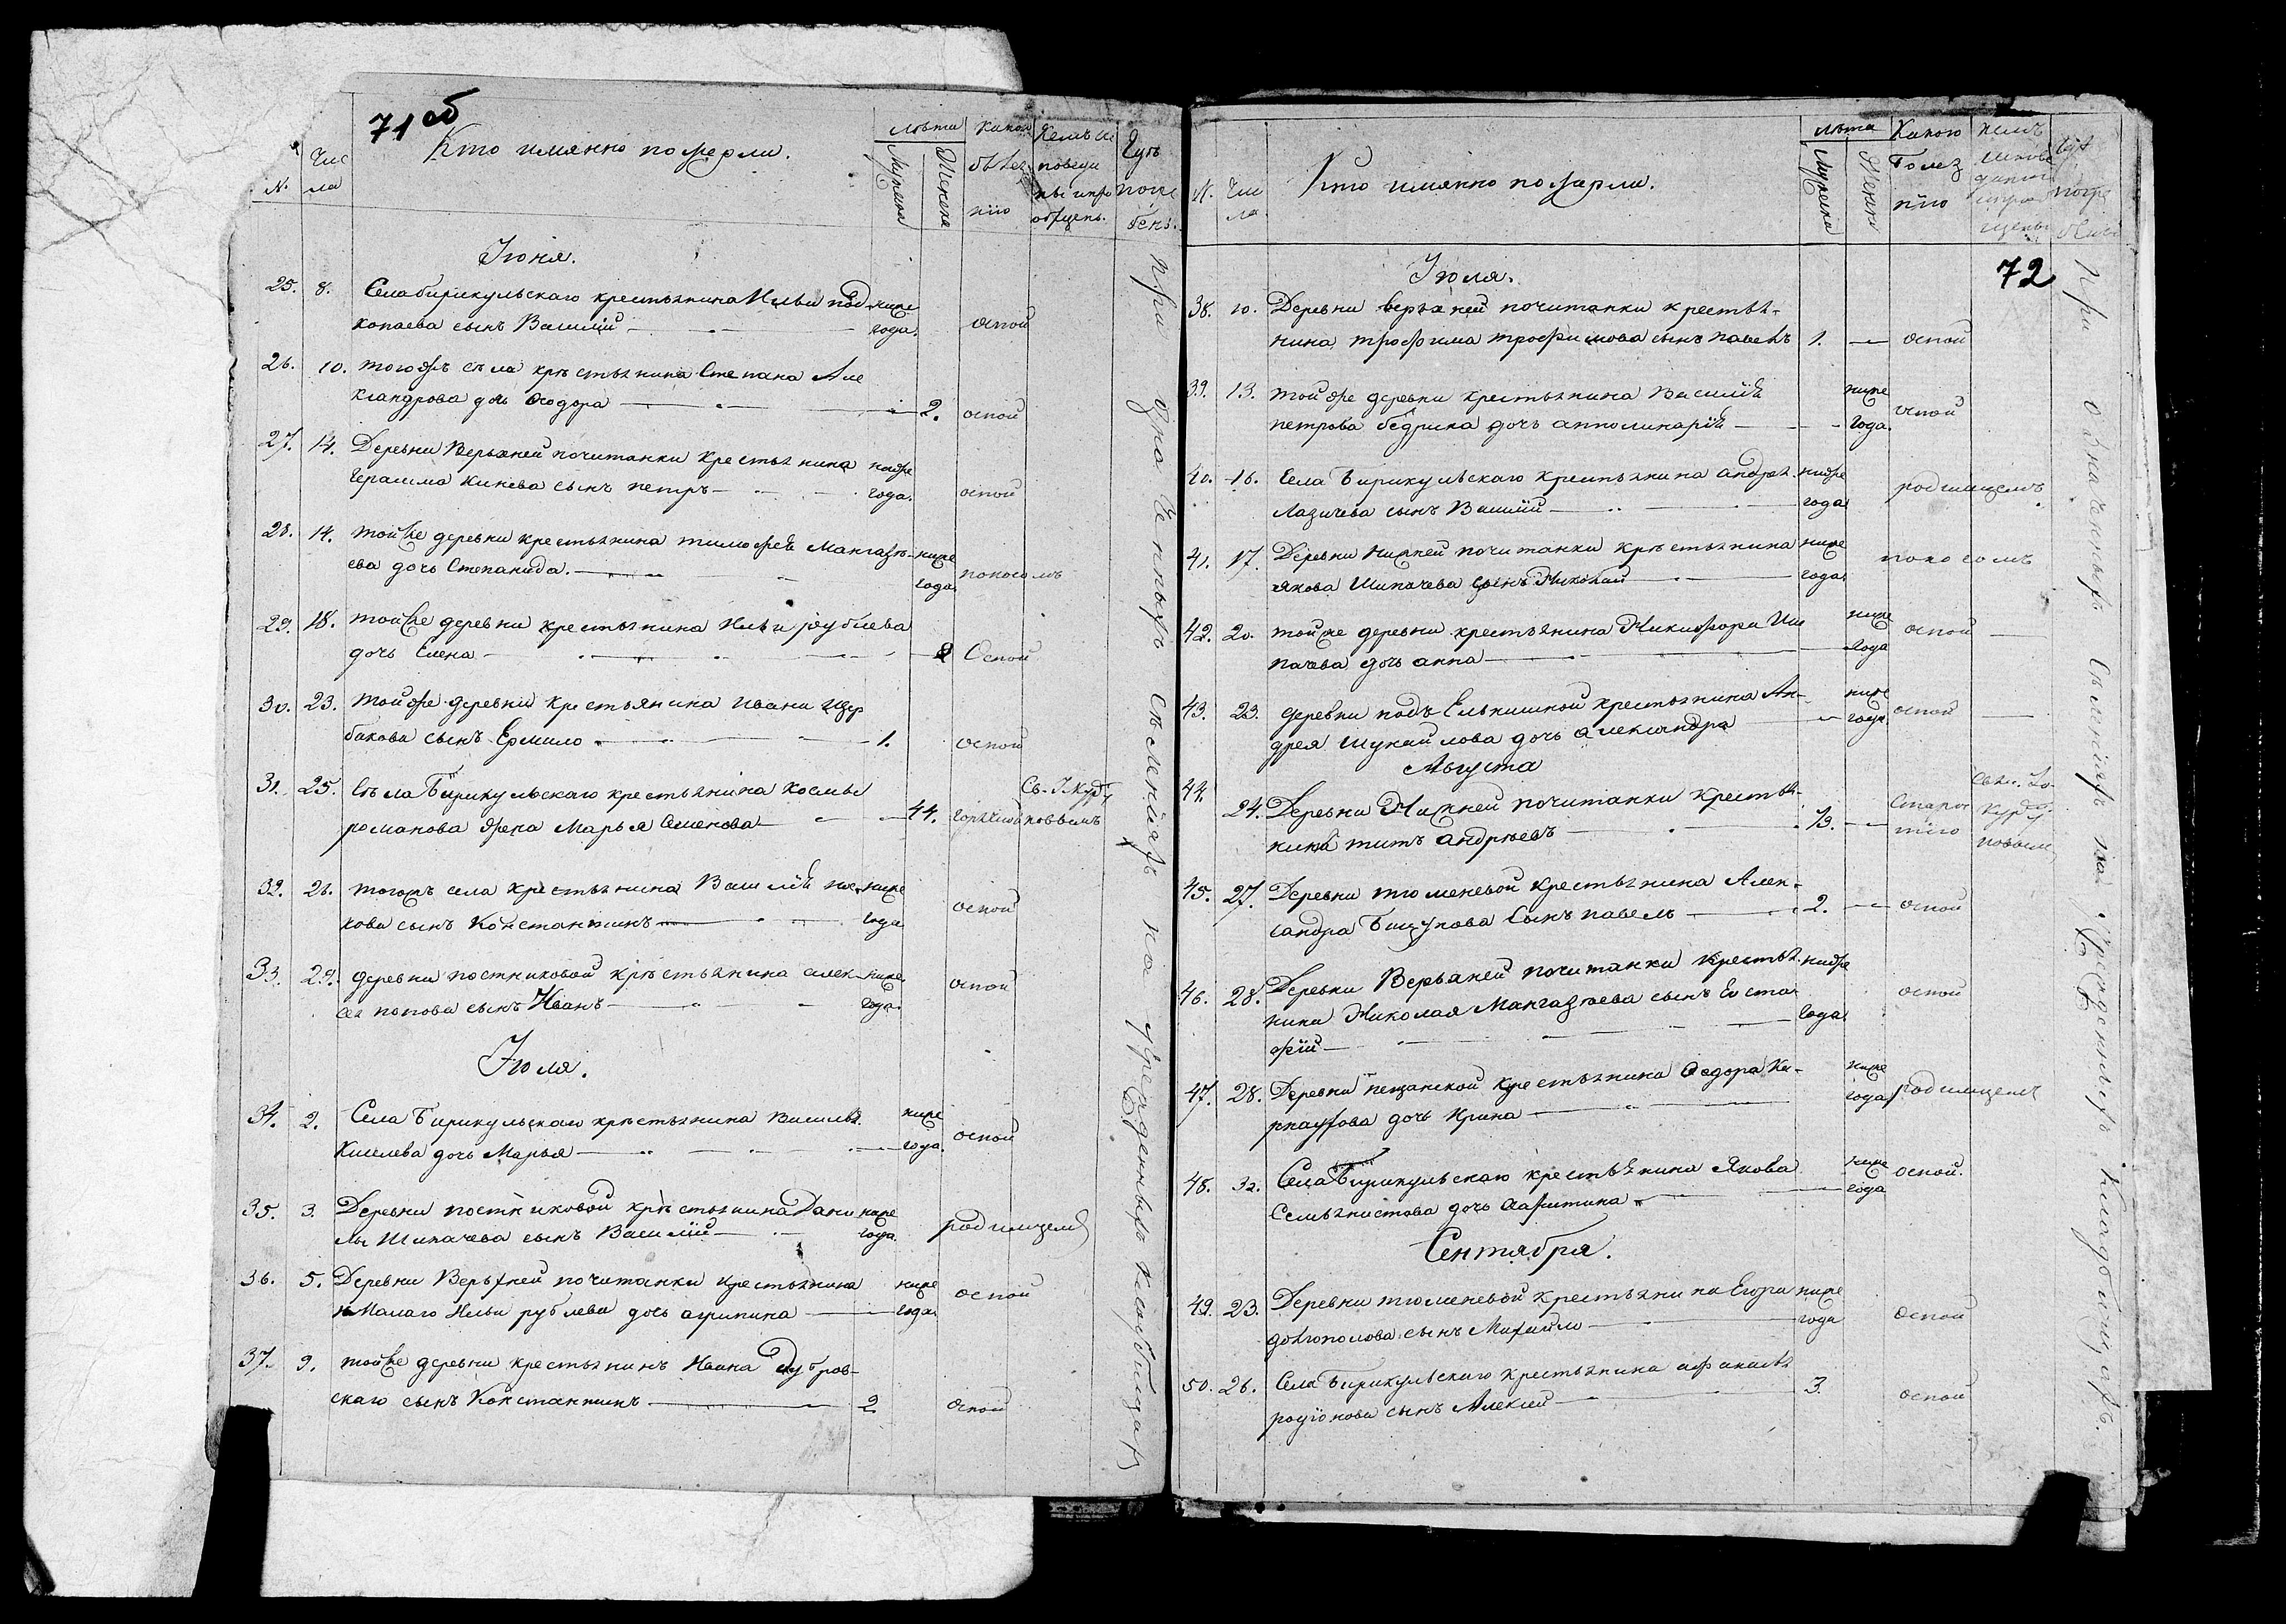 71 об
№ Чис
ла Кто имянно померли. Лѣта
Мужеска Женска Какою
болез
нію Кемъ ис
поведа
ны и прі
общены. Гдѣ
погре
бены.
Іюня.
25. 8. Села бирикульскаго крестьянина Ильи под ниже
копаева сынъ Василій года. оспой
26. 10. тогожъ села крѣстьянина Степана Але
ксандрова дочь Ѳеодора 2. оспой
27. 14. Деревни Верьхней почитанки крестьянина ниже
Герасима Кинева сынъ петръ года. оспой
28. 14. тойже деревни крестьянина тимофея Мангазѣ- ниже
ева дочь Степанида. года. поносомъ
29. 18. тойже деревни крестьянина Ильи рублева
дочь Елена 2 Оспой
30. 23. тойже деревни крестьянина ивана щер
бакова сынъ Ермило 1. оспой
31. 25. Сѣла Бирикульскаго крестьянина космы Св. І. Курд
романова жена Марья Семенова 44. горячкой повымъ
32. 26. тогожъ села крестьянина Василія ниже
кова сынъ Константинъ года оспой
33. 29. деревни постниковой крѣстьянина алек- ниже
сѣя попова сынъ Иванъ года. оспой
Іюля.
34. 2. Села Бирикульскаго крѣстьянина василья ниже
Киселева дочь Марья года. оспой
35. 3. Деревни постниковой крѣстьянина Дани ниже
лы Шипачева сынъ Василій года. родимцемъ
36. 5. Деревни Верьхней почитанки крестьянина ниже
Малаго Ильи рублева дочь агрипина года. оспой
37. 9. тойже деревни крестьянинъ Ивана Дубров-
скаго сынъ Константинъ 2 оспой
при означенныхъ сѣленіяхъ на учрежденныхъ кладбищахъ
72
№ Чис
ла Кто имянно померли. Лѣта
Мужеска Женска Какою
болез
нію кемъ
испове
даны
и прiоб
щены гдѣ
погре
бены
Іюля.
38. 10. Деревни верьхней почитанки крестья-
нина трофима трофимова сынъ павелъ 1. оспой
39. 13. тойже деревни крестьянина Василія ниже
петрова бедрина дочь апполинарія года. оспой
40. 16. Села Бирикульскаго крестьянина андрея ниже
Лазичева сынъ Василій года родимцемъ
41. 17. Деревни нижней почитанки крѣстьянина ниже
якова Шипачева сынъ Николай года. поносомъ
42. 20. тойже деревни крестьянина Никифора Ши ниже
пачева дочь анна года оспой
43. 23. деревни подъ Ельнишной крестьянина Ан- ниже
дрея Шукайлова дочь александра года. оспой
Августа
44. 24. Деревни Нижней почитанки крестья- Свящ. Іо.
нина титъ андреевъ 73. старостiю Курд
повымъ
45. 27. Деревни тюменевой крестьянина Алек-
сандра Бишукова сынъ павелъ 2. оспой
46. 28. Деревни Верьхней почитанки крестья- ниже
нина Николая Мангазѣева сынъ Евста- года. оспой
фій
47. 28. Деревни песчанской крестьянина Ѳедора Ка- ниже
рнаухова дочь Ирина года родимцемъ
48. 32. Села Бирикульскаго крестьянина Якова ниже
Сельянистова дочь Харитина года оспой.
Сентября.
49. 23. Деревни тюменевой крестьянина Егора ниже
долгополова сынъ Михайло года оспой
50. 26. Села Бирикульскаго крестьянина афанасья
родіонова сынъ Алексей 3. оспой
При означенныхъ сѣленіяхъ на учрежденныхъ кладбищахъ.